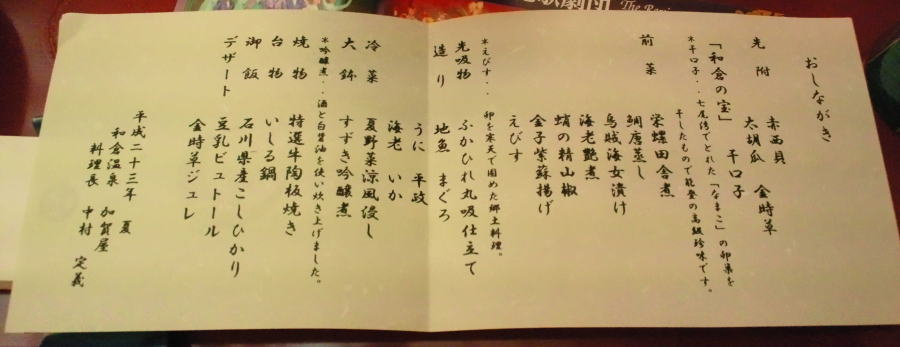 歌劇団
The Revi
おしながき
先附 赤西貝 金時草
太胡瓜 干口子
「和倉の宝」
*干口子‥七尾湾でとれた「なまこ」の卵巣を
干したもので能登の高級珍味です。
前菜 栄螺田舎煮
鯛唐蒸し
烏賊海女漬け
海老艶煮
蛸の精山椒
金子紫蘇揚げ
えびす
*えびす‥卵を寒天で固めた郷土料理。
先吸物 ふかひれ丸吸仕立て
造り 地魚 まぐろ
うに 平政
海老 いか
冷菜 夏野菜涼風浸し
大鉢 すずき吟醸煮
*吟醸煮‥酒と白醤油を使い炊き上げました。
焼物 特選牛陶板焼き
台物 いしる鍋
御飯 石川県産こしひかり
デザート 豆乳ビュトール
金時草ジュレ
平成二十三年 夏
和倉温泉 加賀屋
料理長 中村 定義